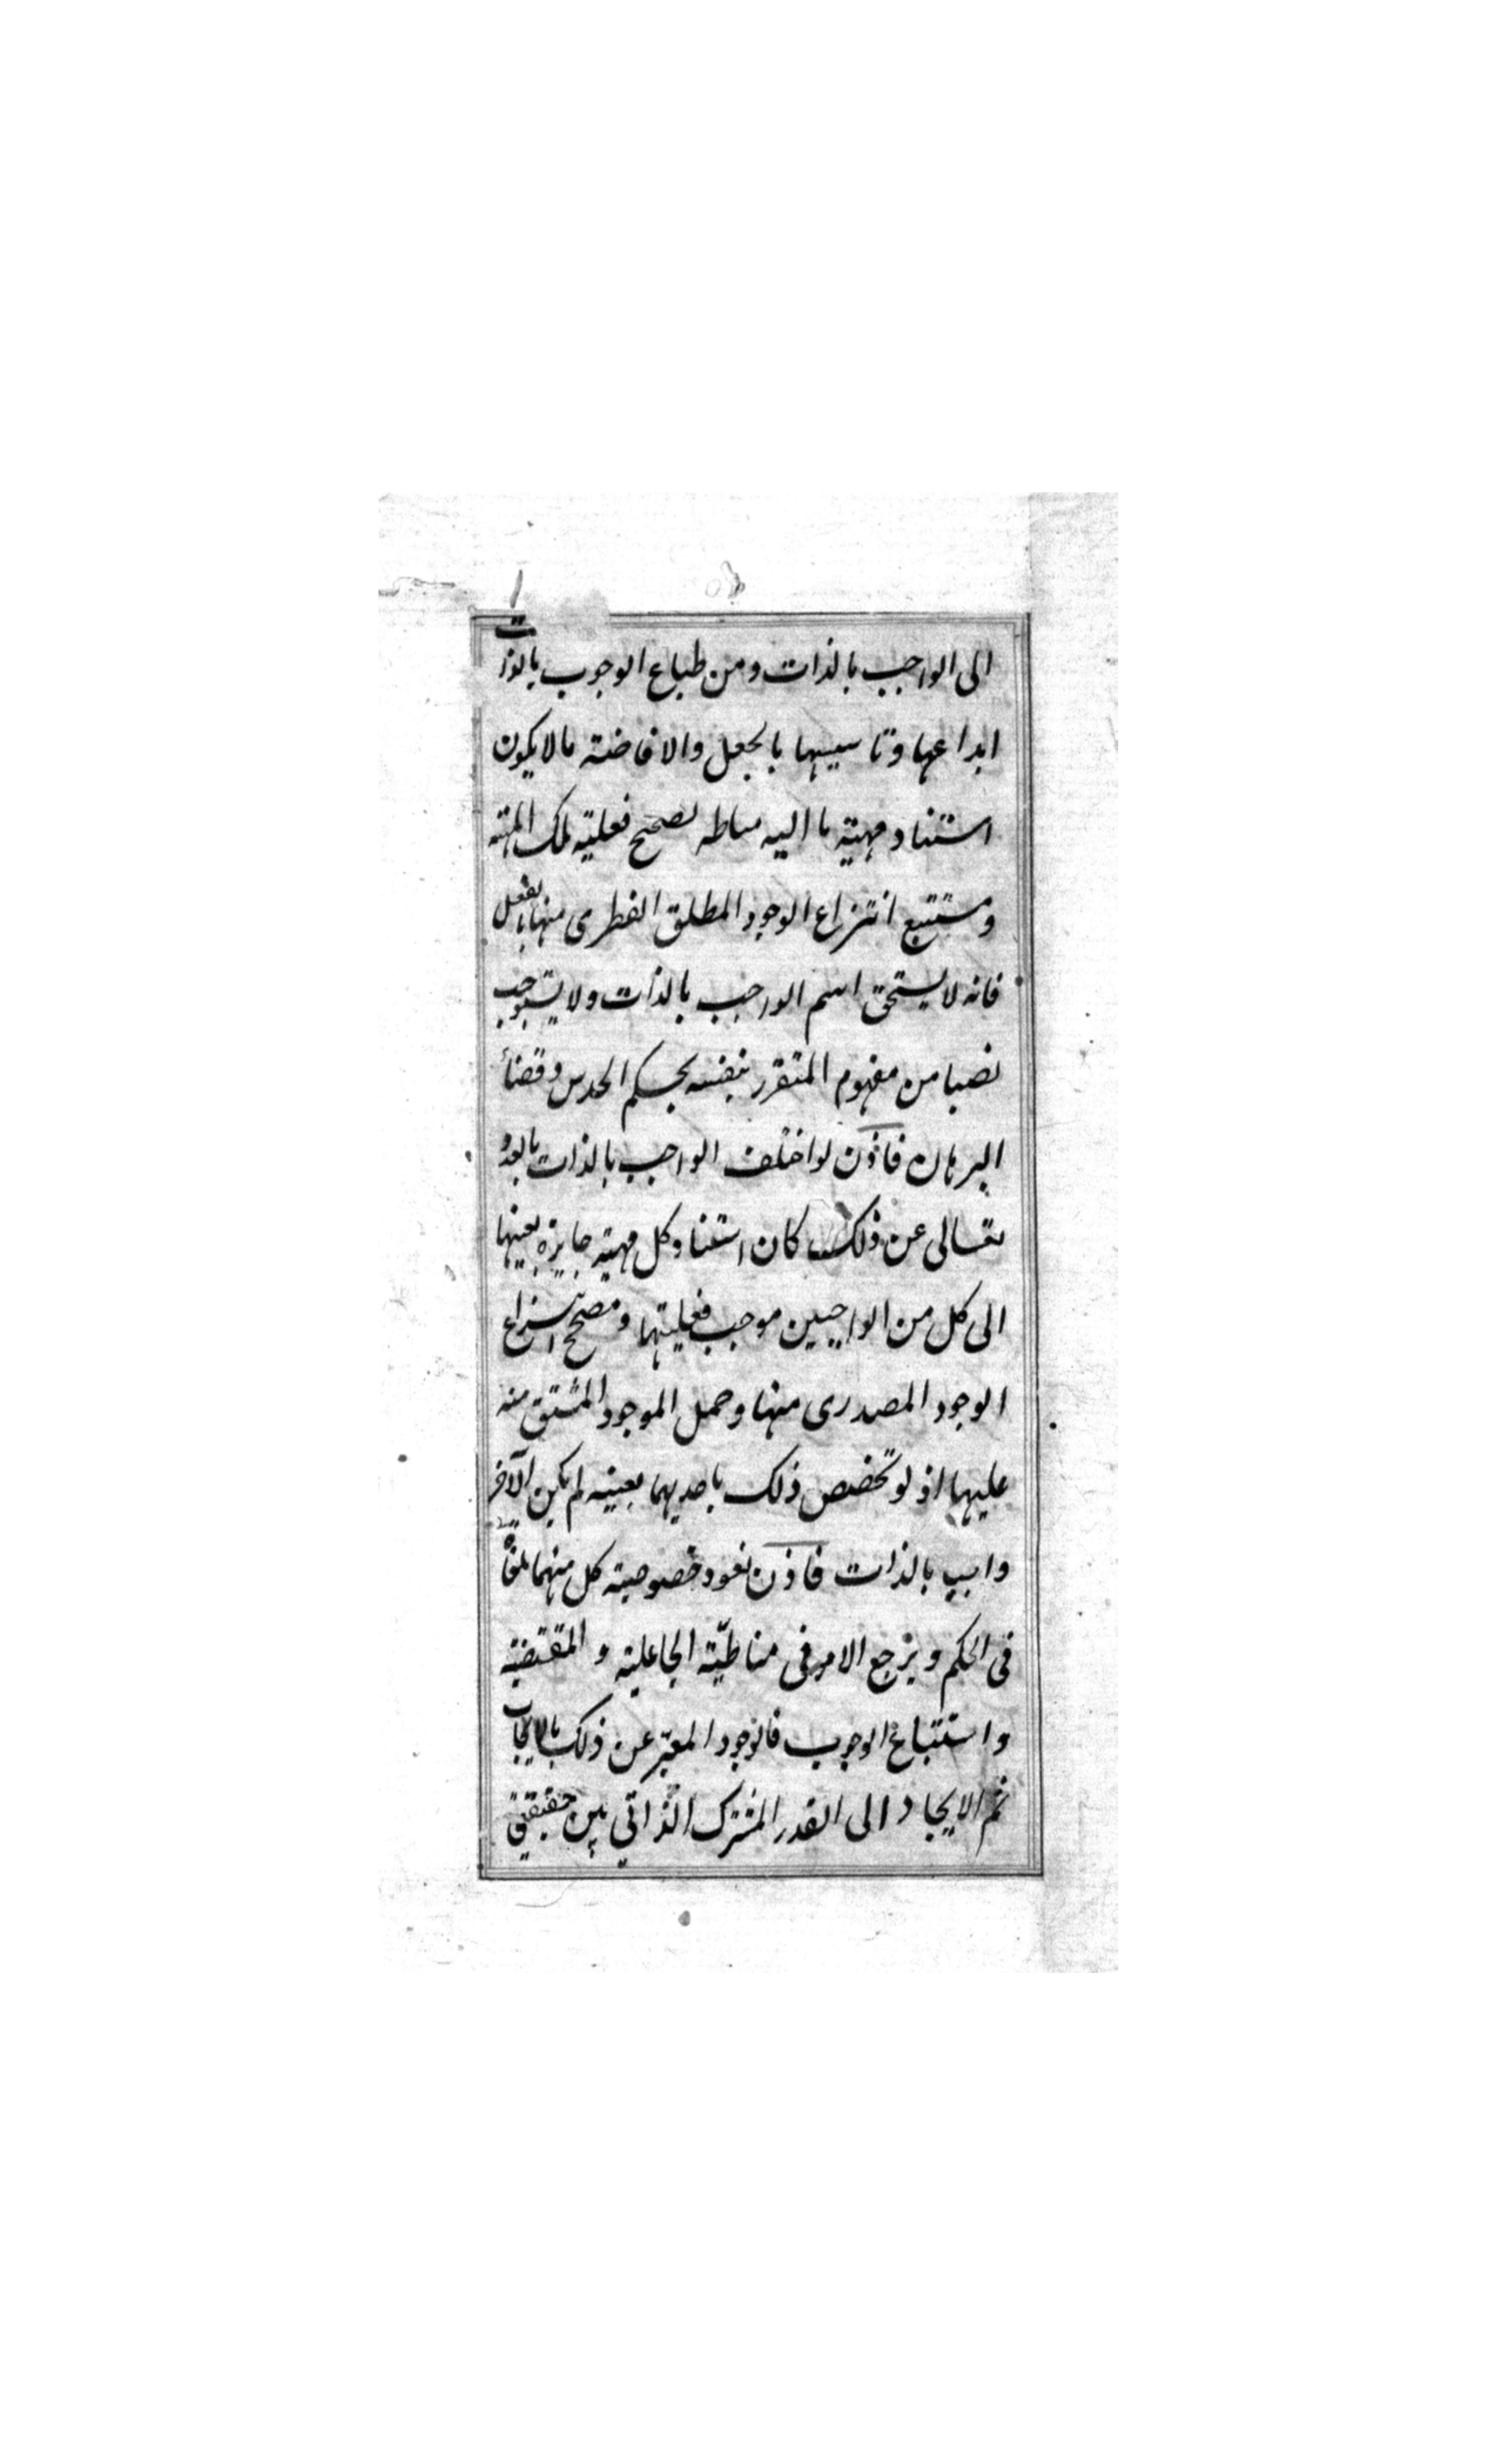 الى الواجب بالذات ومن طباع الوجوب بالذات
ابداعها وتاسيسها بالجعل والافاضة مالايكون
استناد مهية ما اليه مناطه تصحح فعلية تلك المهية
ومستتبع انتزاع الوجود المطلق الفطرى منها بالفعل
فانه لايستحق اسم الواجب بالذات ولا يستوجب
نصيبا من مفهوم المتقرر بنفسه بحكم الحدس وقضاء
البرهان فاذن لو اختلف الواجب بالذات بالعدد
تعالى عن ذلك كان استناد كل مهية جايزة بعينها
الى كل من الواجبين موجب فعليتها ومصحح انتزاع
الوجود المصدرى منها وحمل الموجود المشتق منه
عليها اذ لو تخصص ذلك باحديهما بعينه لم يكن الآخر
واجب بالذات فاذن تعود خصوصية كل منهما ملغاة
فى الحكم ويرجع الامر فى مناطيّة الجاعلية والمقتضية
واستتباع الوجوب فالوجود المعبّر عن ذلك بالايجاب
ثم الايجاد الى القدر المشترك الذاتي بين حقيقتي